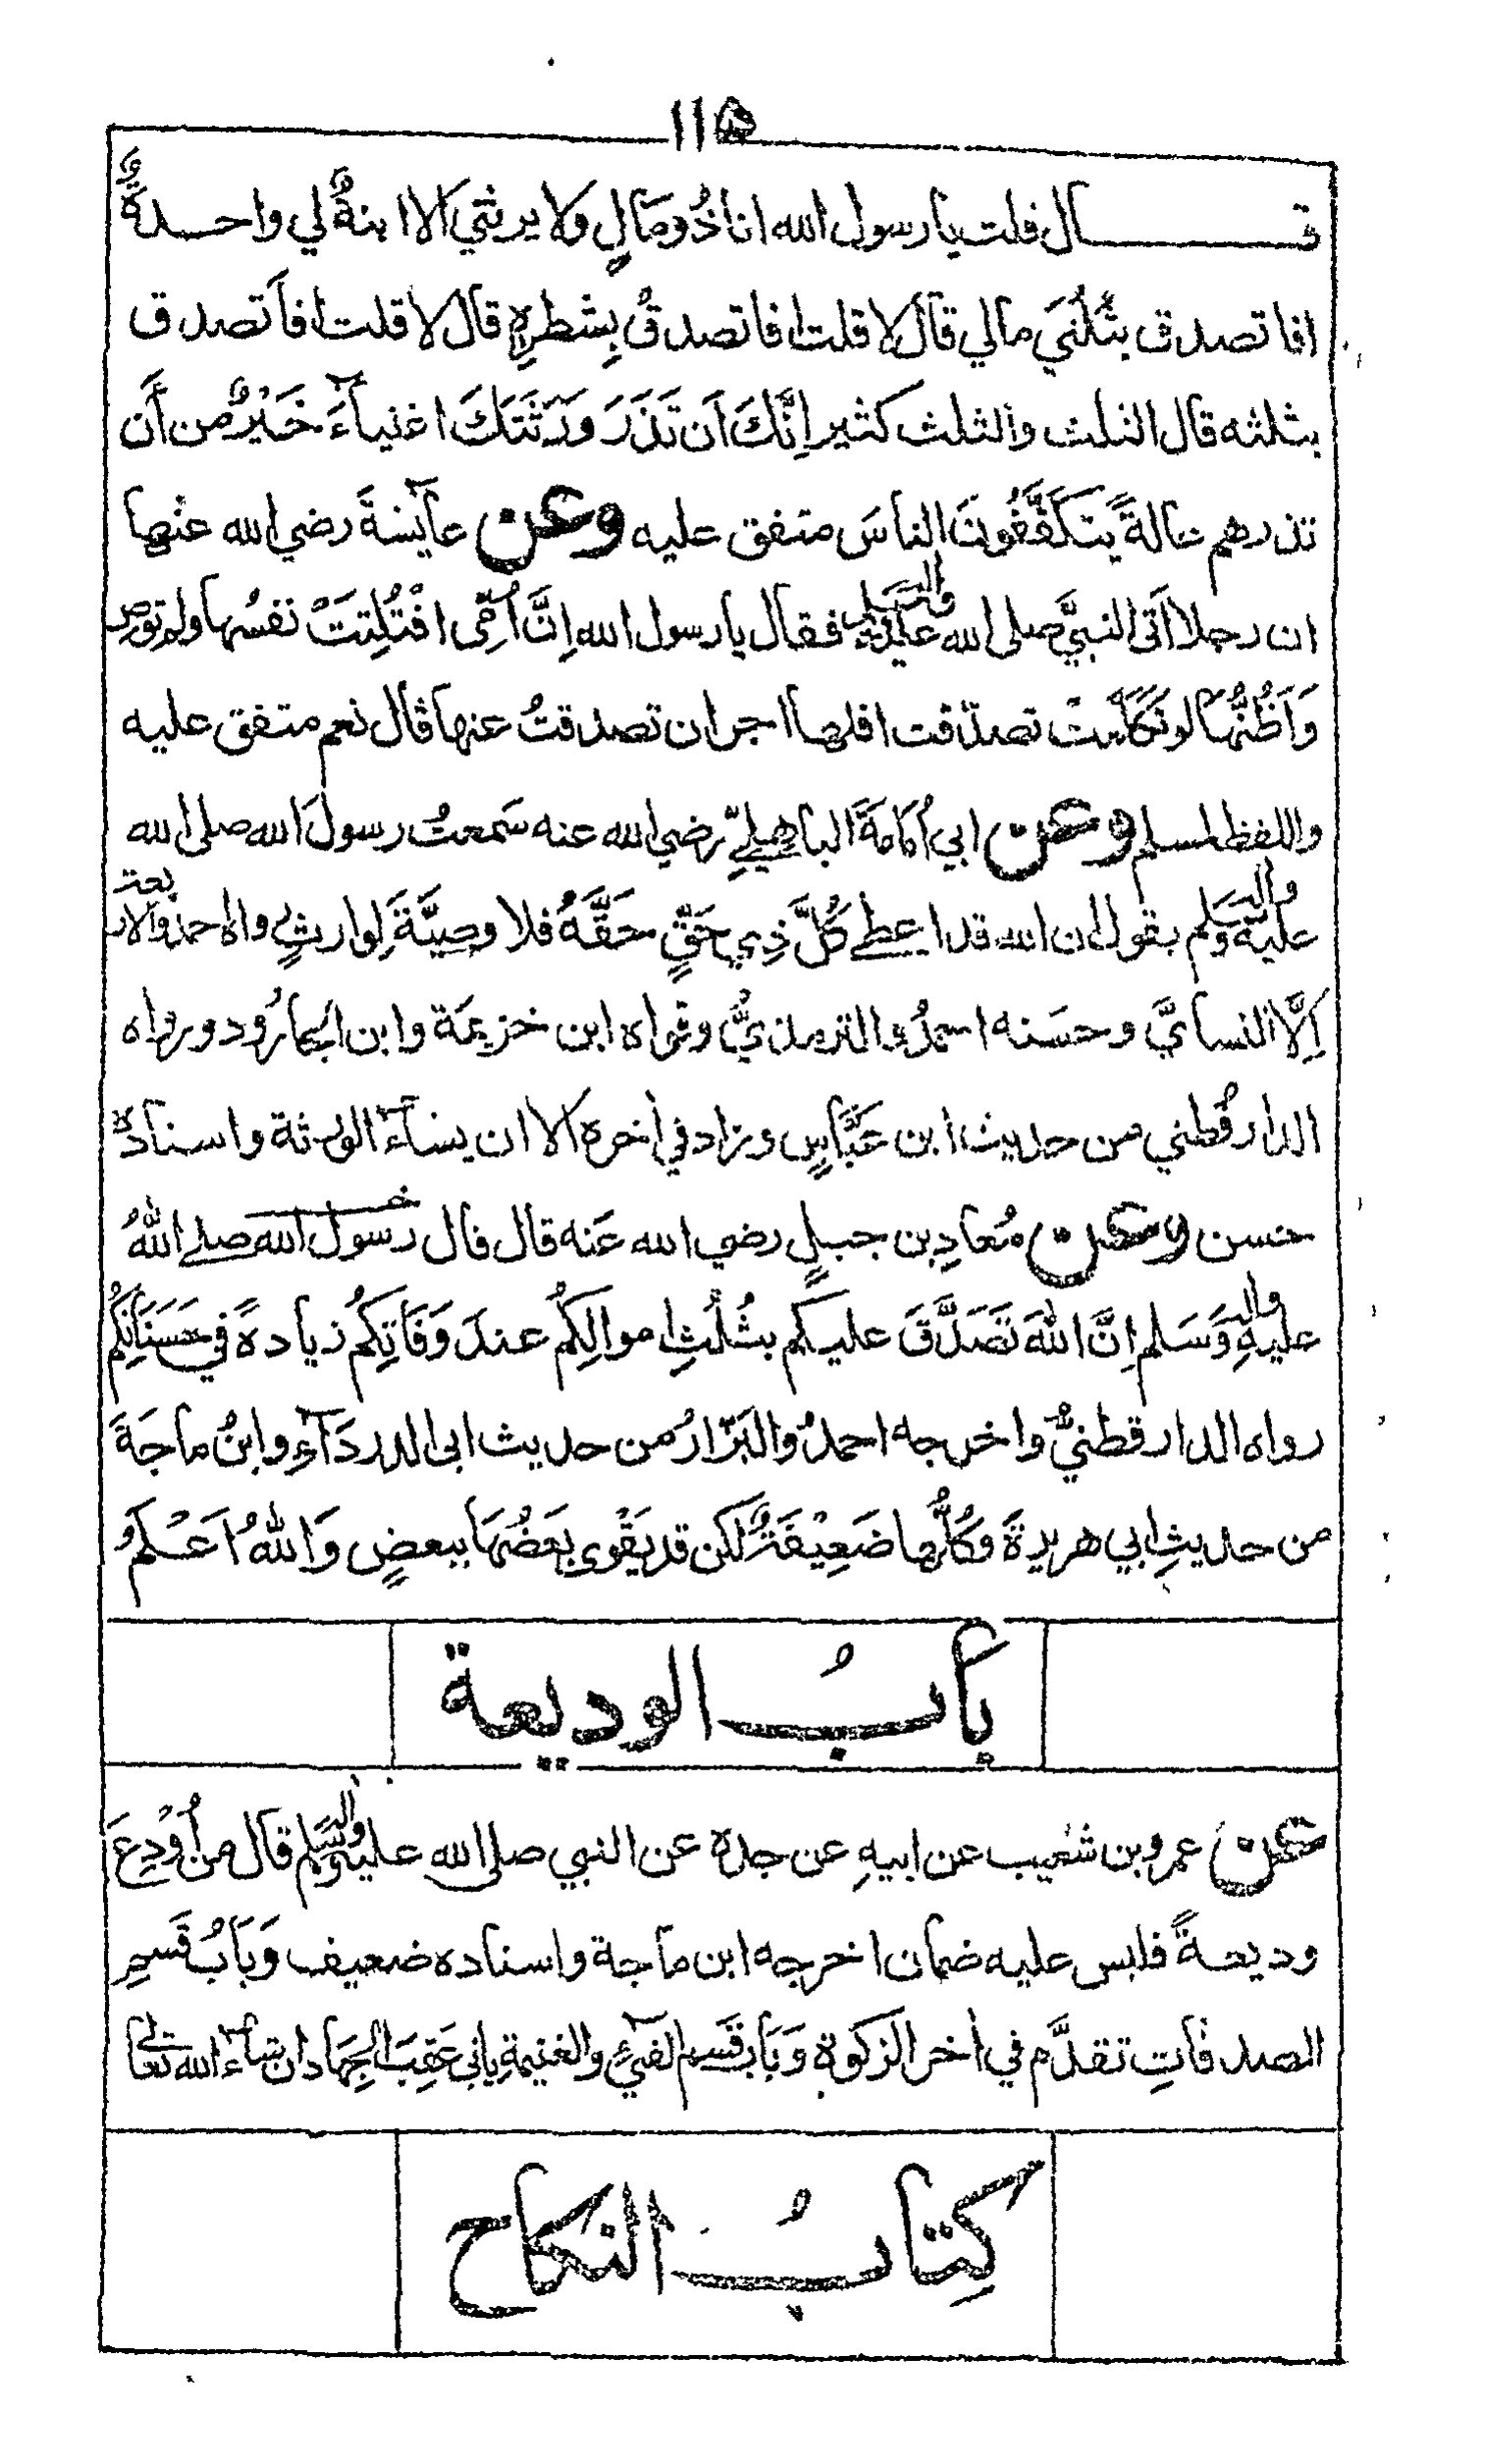 ١١٥
قال قلت يا رسول الله انا ذُو مَالٍ ولا يرثني الا ابنةٌ لي واحدةٌ
افاتصدق بثُلُثَي مالي قال لا قلت افاتصدقُ بِشطرِهِ قال لا قلت افاَتصدق
بثلثه قال الثلث والثلث كثير اِنَّكَ اَن تَذَرَ وَرَثَتَكَ اغنياۤءَ خَيْرٌ من اَن
تذرهم عالةً يتكَفَّفُونَ الناسَ متفق عليه وعن عاۤيشةَ رضي الله عنها
ان رجلا اَتى النبيَّ صلى الله عليه واله وسلم فقال يا رسول الله اِنَّ اُمّى افْتُلِتَتْ نفسُها ولم توص
وَاَظُنُّهَا لو تَكَلَّمت تصدّقت افلها اجر ان تصدقتُ عنها قال نعم متفق عليه
واللفظ لمسلم وعن ابي اُمَامَةَ الباهِلِيِّ رضي الله عنه سَمعتُ رسولَ الله صلى الله
عليه واله وسلم يقول ان الله قد اعطى كُلَّ ذِي حَقٍّ حَقَّهُ فلا وصيَّةَ لِوارِثٍ رواه احمدُ والاربعة
اِلَّا النسايَّ وحسَنه احمدُ والترمذيُّ وقواه ابن خزيمَة وابن الجارُود ورواه
الدارقُطني من حديث ابن عَبَّاسٍ وزاد في اٰخره الا ان يشاۤءَ الورثة واسنادُه
حسن وعن مُعاذِ بن جبلٍ رضي الله عَنه قال قال رَسول الله صلے اللهُ
عليهِ واله وَسَلم اِنَّ اللهَ تَصَدَّقَ عليكم بثُلُثِ اموالِكُم عندَ وَفَاتِكُم زيادةً في حَسَنَاتِكُم
رواه الدارقطنيُّ واخرجه احمدُ والبَزّارُ من حديث ابى الدردَاۤءِ وابنُ ماجَةَ
من حديثِ ابي هريرةَ وكُلُّها ضَعِيْفَةٌ لكن قد يَقْوى بَعضُهَا ببعضٍ وَاللهُ اَعْلمُ
بابُ الوديعة
عن عمرو بن شعيب عن ابيهِ عن جده عن النبي صلى الله عليه واله وسلم قال من اُوْدِعَ
وديعةً فليس عليه ضمان اخرجه ابن ماجة واسناده ضعيف وَبَابُ قَسمِ
الصدقاتِ تقدَّم في اٰخر الزكوة وَبَابُ قَسم الفيءِ والغنيمةِ ياتي عَقِبَ الجِهَاد ان شاۤء الله تعالى
كِتابُ النكاح